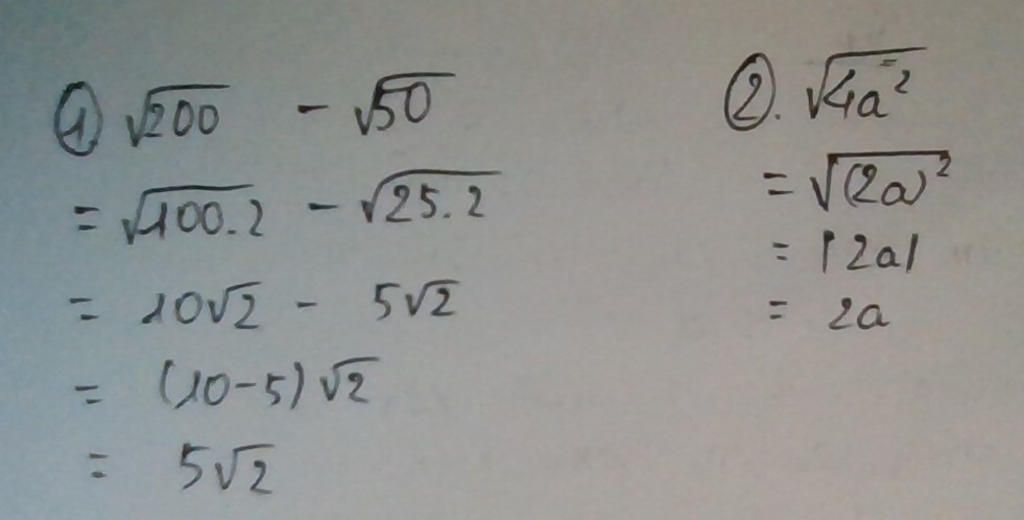 ① √200 - √50
= √100.2 - √25.2
= 10√2 - 5√2
= (10-5)√2
= 5√2
②. √4a²
= √(2a)²
= |2a|
= 2a